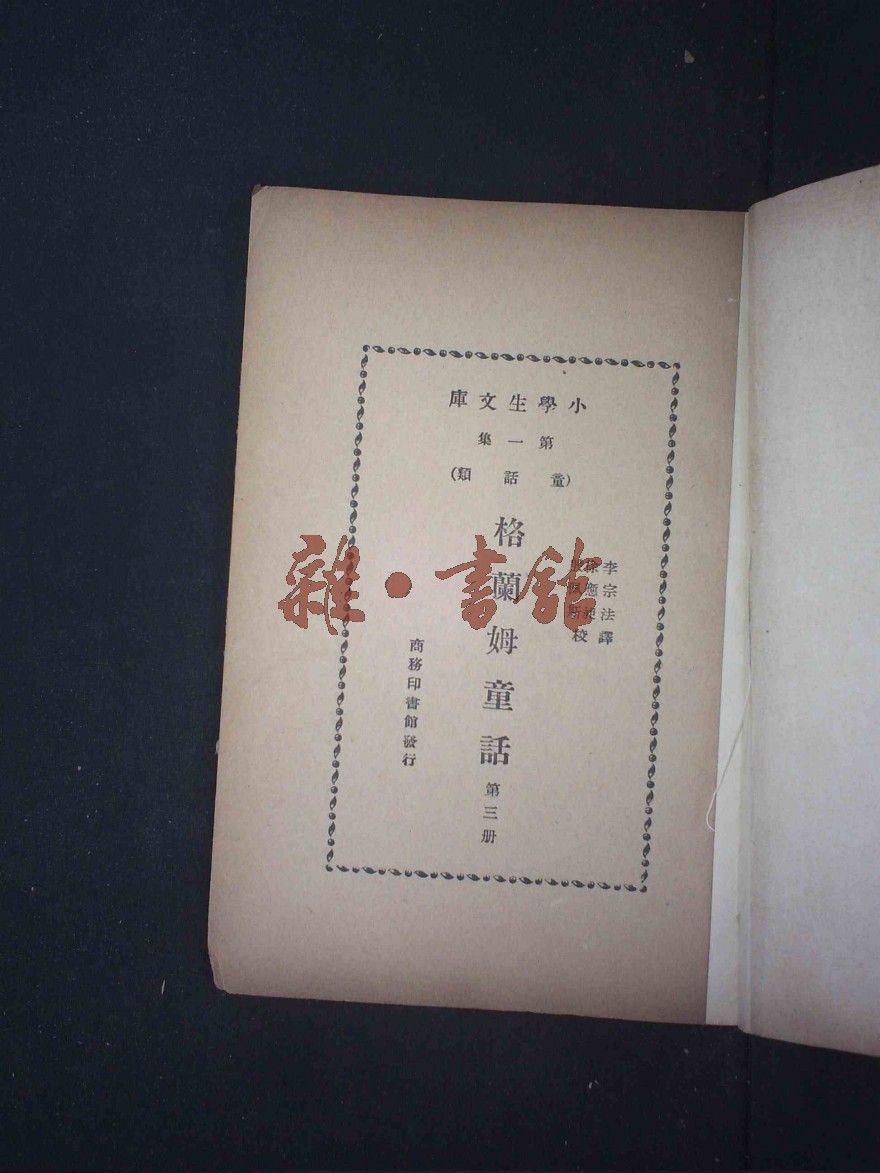 小學生文庫
第一集
(童話類)
李宗法譯
徐應昶
校
格蘭姆童話 第三册
商務印書館發行
雜·書館